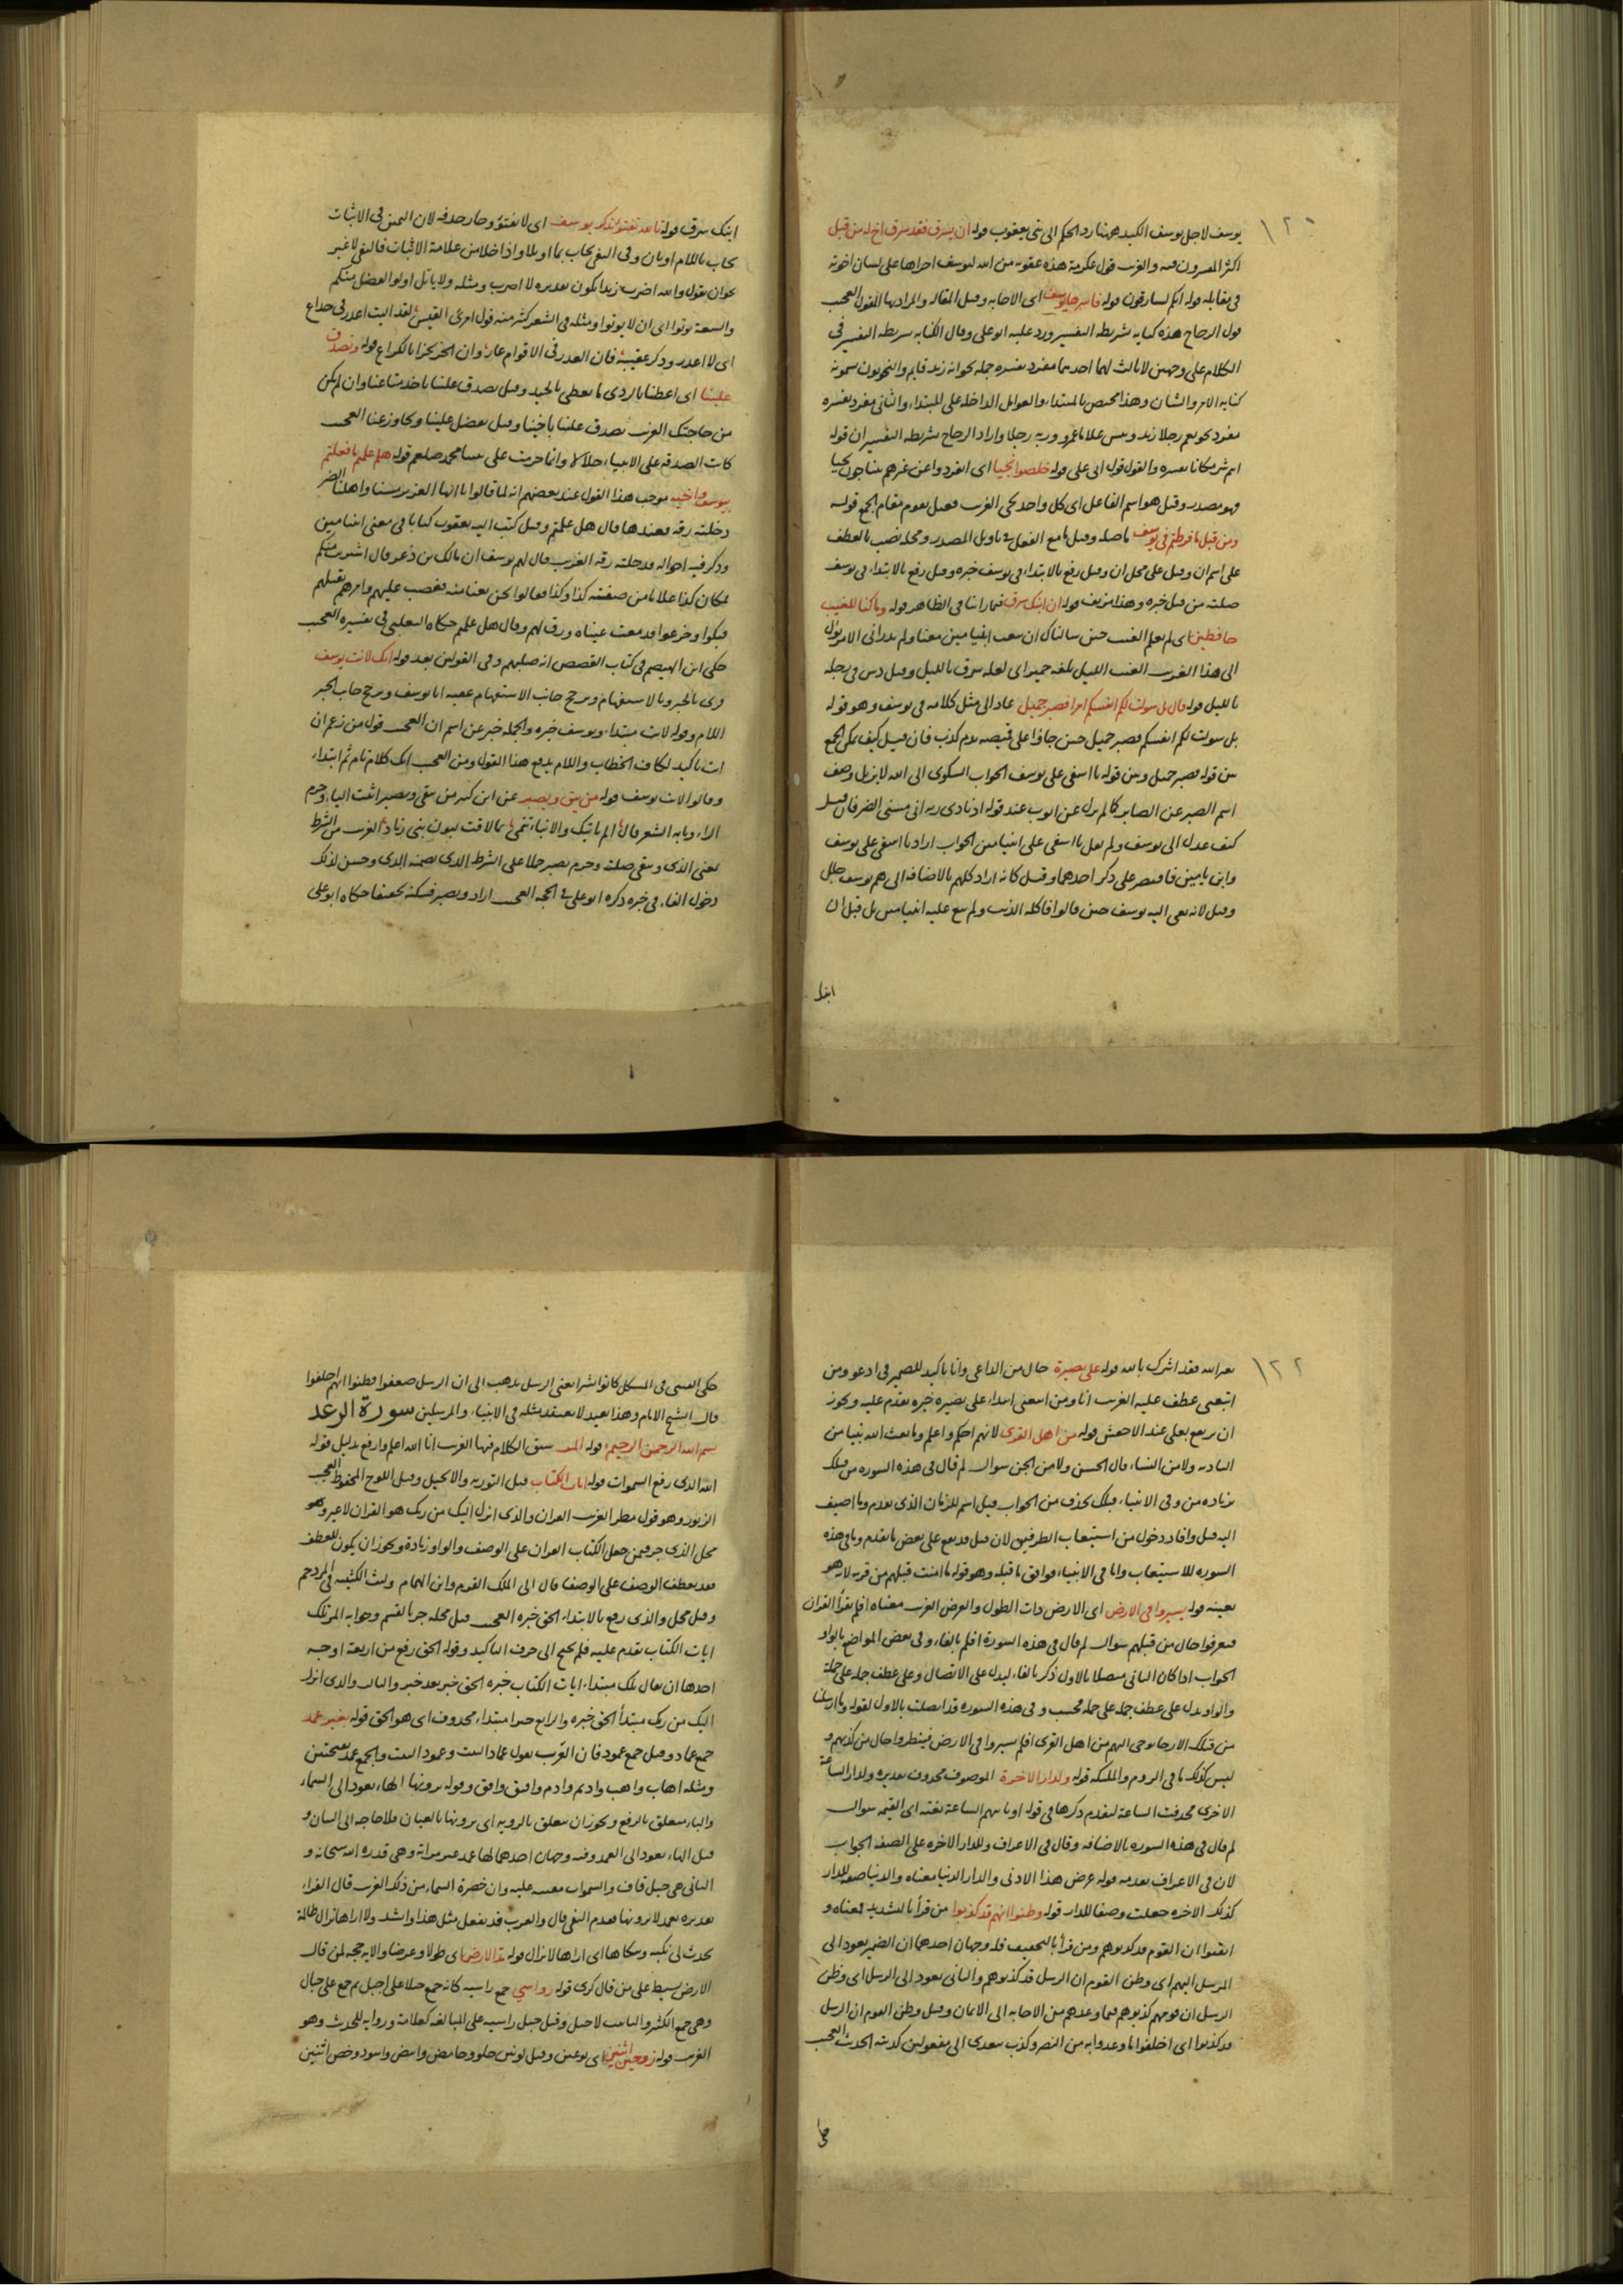 ١٢٠
يوسف لاجل يوسف الكيد ههنا رد الحكم الى بنى يعقوب قوله ان يسرق فقد سرق اخ له من قبل
اكثر المفسرون فيه والغريب قول عكرمة هذه عقوبة من الله ليوسف اجراها على لسان اخوته
فى مقابله قوله انكم لسارقون قوله فاسرها يوسف اى الاجابه وقيل المقاله والمراد بها المقول العجيب
قول الزجاج هذه كناية شريطه التفسير ورد عليه ابو على وقال الكنايه شريطه التفسير فى
الكلام على وجهين لا ثالث لهما احدهما مفرد تفسره جملة نحو انه زيد قايم والنحويون سمونه
كناية الامر والشان وهذا مختص بالمبتداء والعوامل الداخله على المبتداء والثانى مفرد تفسره
مفرد نحو نعم رجلا زيد وبيس غلاما عمرو وربه رجلا واراد الزجاج بشريطه التفسير ان قوله
انتم شر مكانا تفسيره والقول قول ابى على قوله خلصوا نجيا اى انفردوا عن غيرهم متناجين نجيا
فهو مصدر وقيل هو اسم الفاعل اى كل واحد نجى الغريب فعيل يقوم مقام الجمع قوله
ومن قبل ما فرطتم فى يوسف ما صله وقيل ما مع الفعل فى تاويل المصدر ومحله نصب بالعطف
على اسم ان وقيل على محل ان وقيل رفع بالابتداء فى يوسف خبره وقيل رفع بالابتداء فى يوسف
صلته من قبل خبره وهذا مزيف قوله ان ابنك سرق فيما راينا فى الظاهر قوله وما كنا للغيب
حافظين اى لم نعلم الغيب حين سالناك ان تبعث ابنيامين معنا ولم ندر انى الامر يؤل
الى هذا الغريب الغيب الليل بلغة حمير اى لعله سرق بالليل وقيل دس فى رحله
بالليل قوله قال بل سولت لكم انفسكم امرا فصبر جميل عاد الى مثل كلامه فى يوسف وهو قوله
بل سولت لكم انفسكم فصبر جميل حين جاؤا على قميصه بدم كذب فان قيل كيف يمكن الجمع
بين قوله فصبر جميل وبين قوله يا اسفى على يوسف الجواب الشكوى الى الله لا يزيل وصف
اسم الصبر عن الصابر كما لم يزل عن ايوب عند قوله اذ نادى ربه انى مسنى الضر فان قيل
كيف عدل الى يوسف ولم يقل يا اسفى على ابنيامين الجواب اراد يا اسفى على يوسف
وابن يامين فاقتصر على ذكر احدهما وقيل كانه اراد كلهم بالاضافه الى هم يوسف جلل
وقيل لانه نعى اليه يوسف حين قالوا فاكله الذيب ولم ينع عليه ابنيامين بل قيل ان
ابنك
ابنك سرق قوله تالله تفتؤ تذكر يوسف اى لا تفتؤ وجاز حذفه لان اليمين فى الاثبات
يجاب باللام او بان وفى النفى يجاب بما او بلا واذا خلا من علامة الاثبات فالنفى لا غير
نحو ان تقول والله اضرب زيدا يكون تقديره لا اضرب ومثله ولا ياتل اولوا الفضل منكم
والسعة يؤتوا اى ان لا يؤتوا ومثله فى الشعر كثير منه قول امرئ القيس لقد اليت اغدر فى جداع
اى لا اغدر وذكر عقيبه فان الغدر فى الاقوام عار وان الحر يجزا بالكراع قوله وتصدق
علينا اى اعطنا بالردى ما تعطى بالجيد وقيل تصدق علينا باخذ متاعنا وان لم يكن
من حاجتك الغريب تصدق علينا باخينا وقيل تفضل علينا وتجاوز عنا العجيب
كانت الصدقة على الانبياء حلالا وانما حرمت على نبينا محمد صلعم قوله هل علمتم ما فعلتم
بيوسف واخيه موجب هذا القول عند بعضهم انه لما قالوا يا ايها العزيز مسنا واهلنا الضر
دخلته رقه فعندها قال هل علمتم وقيل كتب اليه يعقوب كتابا فى معنى ابنيامين
وذكر فيه احواله فدخلته رقه الغريب قال لهم يوسف ان مالك بن ذعر قال اشتريت منكم
بمكان كذا غلاما من صفته كذا وكذا فقالوا نحن بعنا منه فغضب عليهم وامر هم بقتلهم
فبكوا وجزعوا فدمعت عيناه ورق لهم وقال هل علمتم حكاه الثعلبى فى تفسيره العجيب
حكى ابن الهيصم فى كتاب القصص انه صلبهم وفى القولين بعد قوله انك لانت يوسف
قرئ بالخبر وبالاستفهام ويرجح جانب الاستفهام عقيبه انا يوسف ويرجح جانب الخبر
اللام وقوله لانت مبتداء ويوسف خبره والجملة خبر عن اسم ان العجيب قول من زعم ان
انت تاكيد لكاف الخطاب واللام يدفع هذا القول ومن العجيب انك كلام تام ثم ابتداء
وقالوا لانت يوسف قوله من يتق ويصبر عن ابن كثير من يتقى ويصبر اثبت الياء وجزم
الراء وبابه الشعر قال الم ياتيك والانباء تنمى بما لاقت لبون بنى زياد الغريب من الشرط
بمعنى الذى ويتقى صلته وجزم يصبر حملا على الشرط الذى تضمنه الذى وحسن لذلك
دخول الفاء فى خبره ذكره ابو على فى الحجه العجيب اراد ويصبر فسكنه تخفيفا حكاه ابو على
١٢٢
بغير الله فقد اشرك بالله قوله على بصيرة حال من الداعى وانا تاكيد للضمير فى ادعو ومن
اتبعنى عطف عليه الغريب انا ومن اتبعنى ابتداء على بصيره خبره تقدم عليه ويجوز
ان يرتفع بعلى عند الاخفش قوله من اهل القرى لانهم احكم واعلم وما بعث الله نبيا من
البادية ولا من النساء قال الحسن ولا من الجن سوال لم قال فى هذه السوره من قبلك
بزياده من وفى الانبياء قبلك بحذف من الجواب قبل اسم للزمان الذى تقدم وما اضيف
اليه قبل وافاد دخول من استيعاب الطرفين لان قبل قد يقع على بعض ما تقدم وما فى هذه
السوره للاستيعاب واما فى الانبياء فوافق ما قبله وهو قوله ما امنت قبلهم من قرية لانه هو
بعينه قوله يسيروا فى الارض اى الارض ذات الطول والعرض الغريب معناه افلم يقرأ القران
فيعرفوا حال من قبلهم سوال لم قال فى هذه السورة افلم بالفاء وفى بعض المواضع بالواو
الجواب اذا كان الثانى متصلا بالاول ذكر بالفاء ليدل على الاتصال وعلى عطف جملة على جملة
والواو يدل على عطف جملة على جملة فحسب وفى هذه السوره قد اتصلت بالاول لقوله وما ارسلنا
من قبلك الا رجالا نوحى اليهم من اهل القرى افلم يسيروا فى الارض فينظروا حال من كذبهم و
ليس كذلك ما فى الروم والملئكه قوله ولدار الآخرة الموصوف محذوف تقديره ولدار الساعة
الاخرى فحذفت الساعة لتقدم ذكرها فى قوله او تاتيهم الساعة بغتة اى القيمه سوال
لم قال فى هذه السوره بالاضافه وقال فى الاعراف وللدار الآخره على الصفه الجواب
لان فى الاعراف تقدمه قوله عرض هذا الادنى والدار الدنيا معناه والدنيا صفه للدار
كذلك الاخره جعلت وصفا للدار قوله وظنوا انهم قد كذبوا من قرأ بالتشديد فمعناه و
ايقنوا ان القوم قد كذبوهم ومن قرأ بالتخفيف فله وجهان احدهما ان الضمير يعود الى
المرسل اليهم اى وظن القوم ان الرسل قد كذبوهم والثانى يعود الى الرسل اى وظن
الرسل ان قومهم كذبوهم فيما وعدهم من الاجابه الى الايمان وقيل وظن القوم ان الرسل
قد كذبوا اى اخلفوا ما وعدوا به من النصر وكذب يتعدى الى مفعولين كذبته الحديث العجيب
حكى
حكى القتبى فى المشكل كانوا بشرا يعنى الرسل يذهب الى ان الرسل ضعفوا فظنوا انهم اخلفوا
قال الشيخ الامام وهذا بعيد لا نعتقد مثله فى الانبياء والمرسلين سورة الرعد
بسم الله الرحمن الرحيم قوله المر سبق الكلام فيها الغريب انا الله اعلم وارفع بدليل قوله
الله الذى رفع السموات قوله ايات الكتاب قيل التوريه والانجيل وقيل اللوح المحفوظ العجيب
الزبور وهو قول مطر الغريب القران والذى انزل اليك من ربك هو القران لا غير وهو
محل الذى جر فيمن جعل الكتاب القران على الوصف والواو زيادة ويجوز ان يكون للعطف
فقد يعطف الوصف على الوصف قال الى الملك القرم وابن الهمام وليث الكتيبه فى المزدحم
وقيل محل والذى رفع بالابتداء الحق خبره العجيب قيل محله جر بالقسم وجوابه المر تلك
ايات الكتاب تقدم عليه فلم يحتج الى حرف التاكيد وقوله الحق رفع من اربعة اوجه
احدها ان يقال تلك مبتداء ايات الكتاب خبره الحق خبر بعد خبر والثالث والذى انزل
اليك من ربك مبتدأ الحق خبره والرابع خبر مبتداء محذوف اى هو الحق قوله بغير عمد
جمع عماد وقيل جمع عمود فان العرب تقول عماد البيت وعمود البيت والجمع عمد بفتحتين
ومثله اهاب واهب واديم وادم وافيق وافق وقوله ترونها الهاء يعود الى السماء
والباء متعلق بالرفع ويجوز ان يتعلق بالرويه اى ترونها بالعيان فلا حاجه الى البيان و
قيل الهاء يعود الى العمد وفيه وجهان احدهما لها عمد غير مرئيه وهى قدره الله سبحانه و
الثانى هى جبل قاف والسموات مقببه عليه وان خضرة السماء من ذلك الغريب قال الفراء
تقديره بعمد لا ترونها فقدم النفى قال والعرب قد يفعل مثل هذا وانشد ولا اراها تزال ظالمة
تحدث لى نكبه وتنكاها اى اراها لا تزال قوله مد الارض اى طولا وعرضا والايه حجه لمن قال
الارض بسيط على من قال كرى قوله رواسى جمع راسيه كانه جمع جبلا على اجبل ثم جمع على جبال
وهى جمع الكثير والتانيث لاجبل وقيل جبل راسية على المبالغه كعلامة وراويه للحديث وهو
الغريب قوله زوجين اثنين اى نوعين وقيل لونين حلو وحامض وابيض واسود وخص اثنين